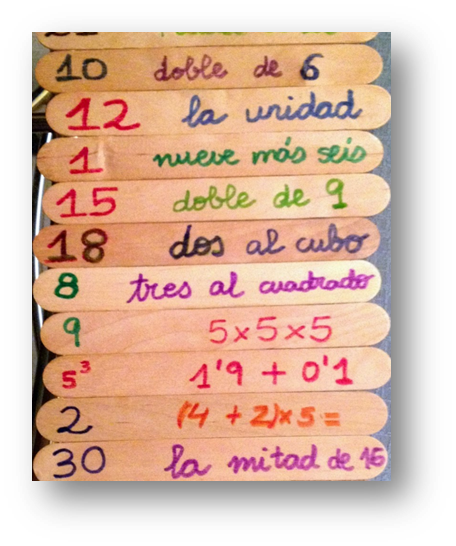 10 doble de 6
12 la unidad
1 nueve más seis
15 doble de 9
18 dos al cubo
8 tres al cuadrado
9 5x5x5
5³ 1'9 + 0'1
2 (4 + 2)x5=
30 la mitad de 16